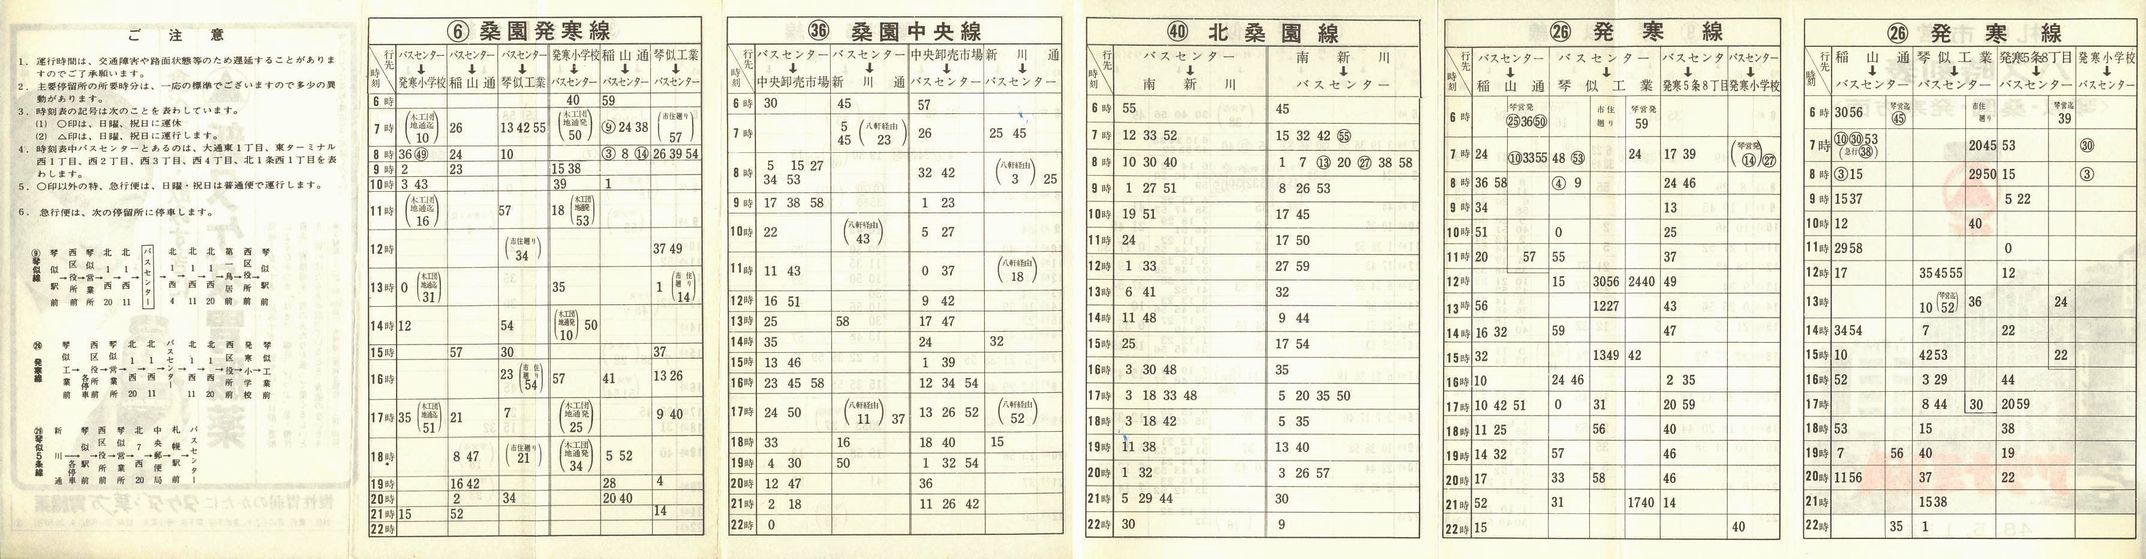 ご注意
1. 運行時間は、交通障害や路面状態等のため遅延することがありま
すのでご了承願います。
2. 主要停留所の所要時分は、一応の標準でございますので多少の異
動があります。
3. 時刻表の記号は次のことを表わしています。
(1) ○印は、日曜、祝日に運休
(2) △印は、日曜、祝日に運行します。
4. 時刻表中バスセンターとあるのは、大通東1丁目、東ターミナル
西1丁目、西2丁目、西3丁目、西4丁目、北1条西1丁目を表
わします。
5. ○印以外の特、急行便は、日曜・祝日は普通便で運行します。
6. 急行便は、次の停留所に停車します。
⑥ 桑園発寒線
行先 時刻
バスセンター↓発寒小学校 バスセンター↓稲山通 バスセンター↓琴似工業 発寒小学校↓バスセンター 稲山通↓バスセンター 琴似工業↓バスセンター
6時 40 59
7時 (木工団地通迄10) 26 13 42 55 (木工団地通発50) ⑨ 24 38 (市住廻り57)
8時 36 ㊾ 24 10 ③ 8 ⑭ 26 39 54
9時 2 23 15 38
10時 3 43 39 1
11時 (木工団地通迄16) 57 18 (木工団地通発53)
12時 (市住廻り34) 37 49
13時 0 (木工団地通迄31) 35 1 (市住廻り14)
14時 12 54 (木工団地通発10) 50
15時 57 30 37
16時 23 (市住廻り54) 57 41 13 26
17時 35 (木工団地通迄51) 21 7 (木工団地通発25) 9 40
18時 8 47 (市住廻り21) (木工団地通発34) 5 52
19時 16 42 28 4
20時 2 34 20 40
21時 15 52 14
22時
㊱ 桑園中央線
行先 時刻
バスセンター↓中央卸売市場 バスセンター↓新川通 中央卸売市場↓バスセンター 新川通↓バスセンター
6時 30 45 57
7時 5 45 (八軒経由23) 26 25 45
8時 5 15 27 34 53 32 42 (八軒経由3) 25
9時 17 38 58 1 23
10時 22 (八軒経由43) 5 27
11時 11 43 0 37 (八軒経由18)
12時 16 51 9 42
13時 25 58 17 47
14時 35 24 32
15時 13 46 1 39
16時 23 45 58 12 34 54
17時 24 50 (八軒経由11) 37 13 26 52 (八軒経由52)
18時 33 16 18 40 15
19時 4 30 50 1 32 54
20時 12 47 36
21時 2 18 11 26 42
22時 0
㊵ 北桑園線
行先 時刻
バスセンター↓南新川 南新川↓バスセンター
6時 55 45
7時 12 33 52 15 32 42 (55)
8時 10 30 40 1 7 ⑬ 20 ㉗ 38 58
9時 1 27 51 8 26 53
10時 19 51 17 45
11時 24 17 50
12時 1 33 27 59
13時 6 41 32
14時 11 48 9 44
15時 25 17 54
16時 3 30 48 35
17時 3 18 33 48 5 20 35 50
18時 3 18 42 5 35
19時 11 38 13 40
20時 1 32 3 26 57
21時 5 29 44 30
22時 30 9
㉖ 発寒線
行先 時刻
バスセンター↓稲山通 バスセンター↓琴似工業 バスセンター↓発寒5条8丁目 バスセンター↓発寒小学校
6時 琴営発 ㉕ 36 ㊿ 市住廻り 琴営発 59
7時 24 ⑩ 33 55 48 (53) 24 17 39 (琴営発⑭) ㉗
8時 36 58 ④ 9 24 46
9時 34 13
10時 51 0 25
11時 20 57 55 37
12時 15 30 56 24 40 49
13時 56 12 27 43
14時 16 32 59 47
15時 32 13 49 42
16時 10 24 46 2 35
17時 10 42 51 0 31 20 59
18時 11 25 56 40
19時 14 32 57 46
20時 17 33 58 46
21時 52 31 17 40 14
22時 15 40
㉖ 発寒線
行先 時刻
稲山通↓バスセンター 琴似工業↓バスセンター 発寒5条8丁目↓バスセンター 発寒小学校↓バスセンター
6時 30 56 琴営迄 ㊺ 市住廻り 琴営迄 39
7時 ⑩ ㉚ 53 (急行㊳) 20 45 53 ㉚
8時 ③ 15 29 50 15 ③
9時 15 37 5 22
10時 12 40
11時 29 58 0
12時 17 35 45 55 12
13時 10 (琴営迄52) 36 24
14時 34 54 7 22
15時 10 42 53 22
16時 52 3 29 44
17時 8 44 30 20 59
18時 53 15 38
19時 7 56 40 19
20時 11 56 37 22
21時 15 38
22時 35 1